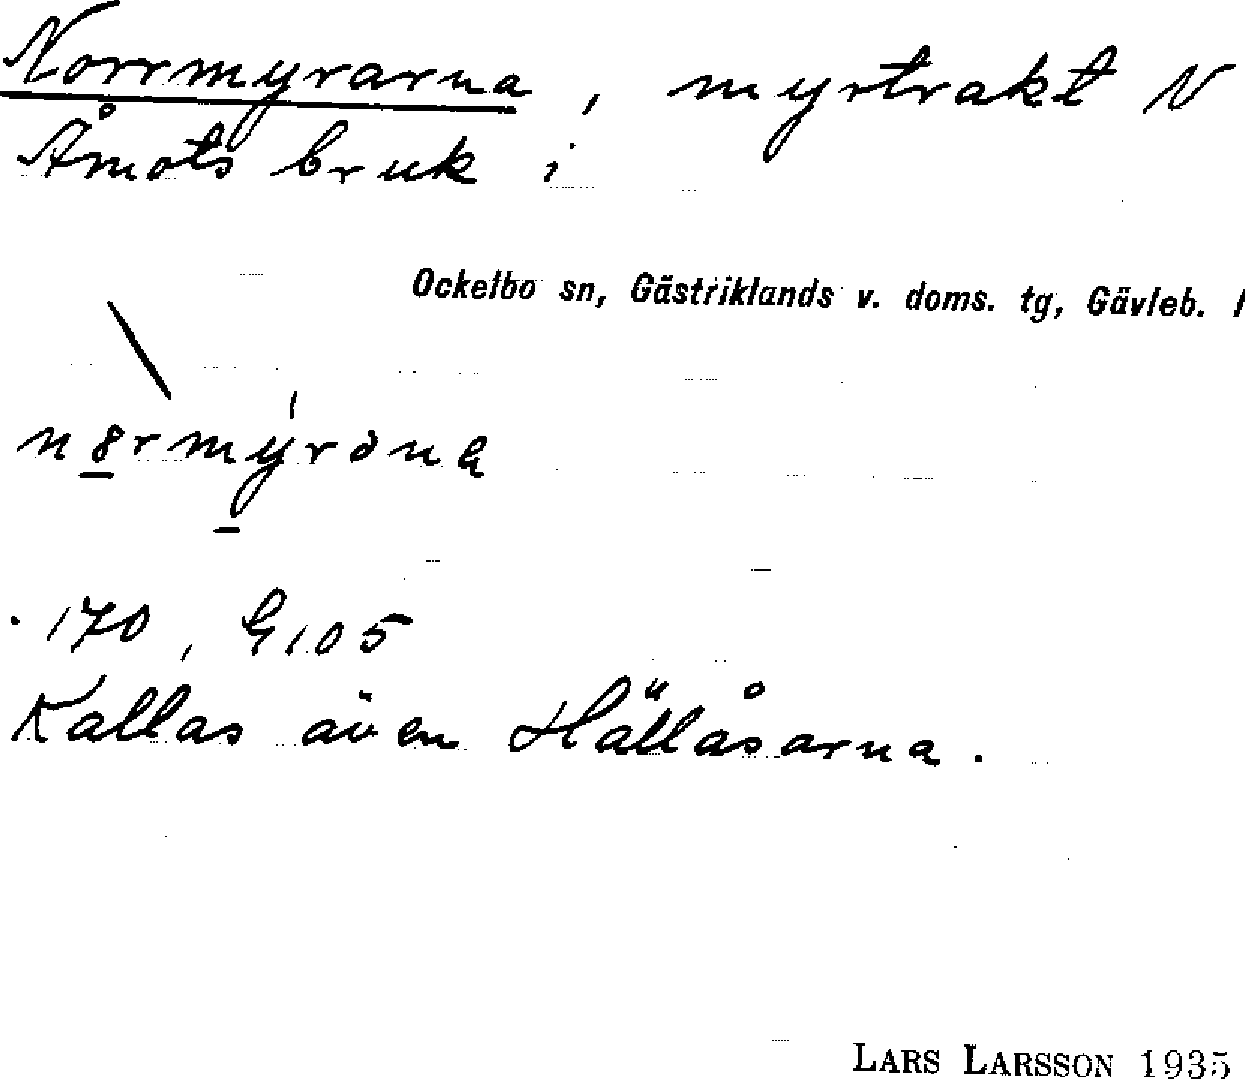 Norrmyrarna, myrtrakt N
Åmots bruk i
Ockelbo sn, Gästriklands v. doms. tg, Gävleb. l
170, G105
Kallas även Hällåsarna.
LARS LARSSON 1935